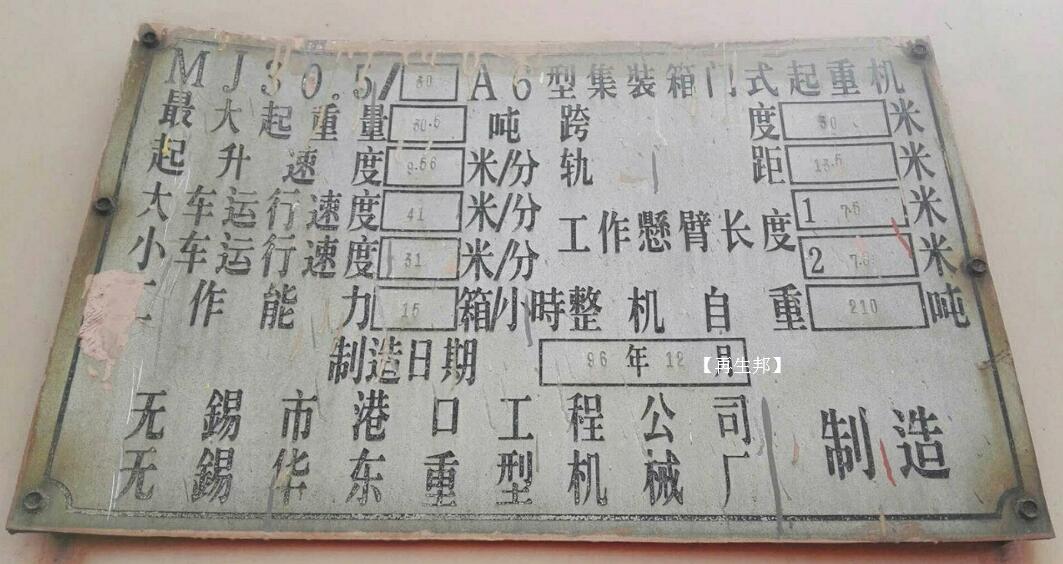 MJ30.5/30 A6型集装箱门式起重机
最大起重量 30.5 吨 跨度 30 米
起升速度 9.56 米/分 轨距 13.5 米
大车运行速度 41 米/分 工作懸臂长度 1 7.5 米
小车运行速度 31 米/分 2 7.5 米
工作能力 15 箱/小時 整机自重 210 吨
制造日期 96年12月
【再生邦】
无錫市港口工程公司
无錫华东重型机械厂 制造